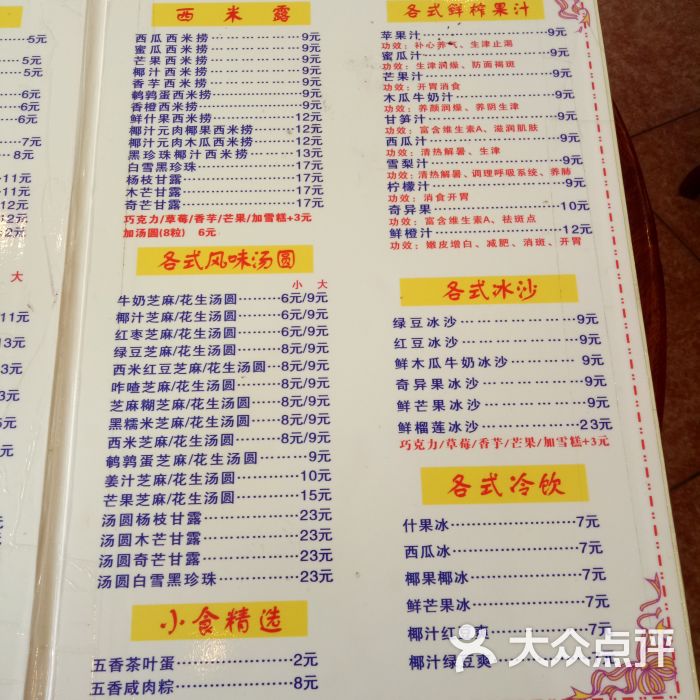 5元
5元
5元
6元
6元
7元
8元
11元
11元
12元
2元
大
11元
13元
3元
3元
元
元
元
西米露
西瓜西米捞 9元
蜜瓜西米捞 9元
芒果西米捞 9元
椰汁西米捞 9元
香芋西米捞 9元
鹌鹑蛋西米捞 9元
香橙西米捞 9元
鲜什果西米捞 12元
椰汁元肉椰果西米捞 12元
椰汁元肉木瓜西米捞 12元
黑珍珠椰汁西米捞 13元
白雪黑珍珠 17元
杨枝甘露 17元
木芒甘露 17元
奇芒甘露 17元
巧克力/草莓/香芋/芒果/加雪糕+3元
加汤圆(8粒) 6元
各式风味汤圆
小 大
牛奶芝麻/花生汤圆 6元/9元
椰汁芝麻/花生汤圆 6元/9元
红枣芝麻/花生汤圆 6元/9元
绿豆芝麻/花生汤圆 8元/9元
西米红豆芝麻/花生汤圆 8元/9元
咋喳芝麻/花生汤圆 8元/9元
芝麻糊芝麻/花生汤圆 8元/9元
黑糯米芝麻/花生汤圆 8元/9元
西米芝麻/花生汤圆 8元/9元
鹌鹑蛋芝麻/花生汤圆 9元
姜汁芝麻/花生汤圆 10元
芒果芝麻/花生汤圆 15元
汤圆杨枝甘露 23元
汤圆木芒甘露 23元
汤圆奇芒甘露 23元
汤圆白雪黑珍珠 23元
小食精选
五香茶叶蛋 2元
五香咸肉粽 8元
各式鲜榨果汁
苹果汁 9元
功效：补心养气、生津止渴
蜜瓜汁 9元
功效：生津润燥、防面褐斑
芒果汁 9元
功效：开胃消食
木瓜牛奶汁 9元
功效：养颜润燥、养阴生津
甘笋汁 9元
功效：富含维生素A、滋润肌肤
西瓜汁 9元
功效：清热解暑、生津
雪梨汁 9元
功效：清热解暑、调理呼吸系统、养肺
柠檬汁 9元
功效：消食开胃
奇异果 10元
功效：富含维生素A、祛斑点
鲜橙汁 12元
功效：嫩皮增白、减肥、消斑、开胃
各式冰沙
绿豆冰沙 9元
红豆冰沙 9元
鲜木瓜牛奶冰沙 9元
奇异果冰沙 9元
鲜芒果冰沙 9元
鲜榴莲冰沙 23元
巧克力/草莓/香芋/芒果/加雪糕+3元
各式冷饮
什果冰 7元
西瓜冰 7元
椰果椰冰 7元
鲜芒果冰 7元
椰汁红豆爽 7元
椰汁绿豆爽 7元
大众点评